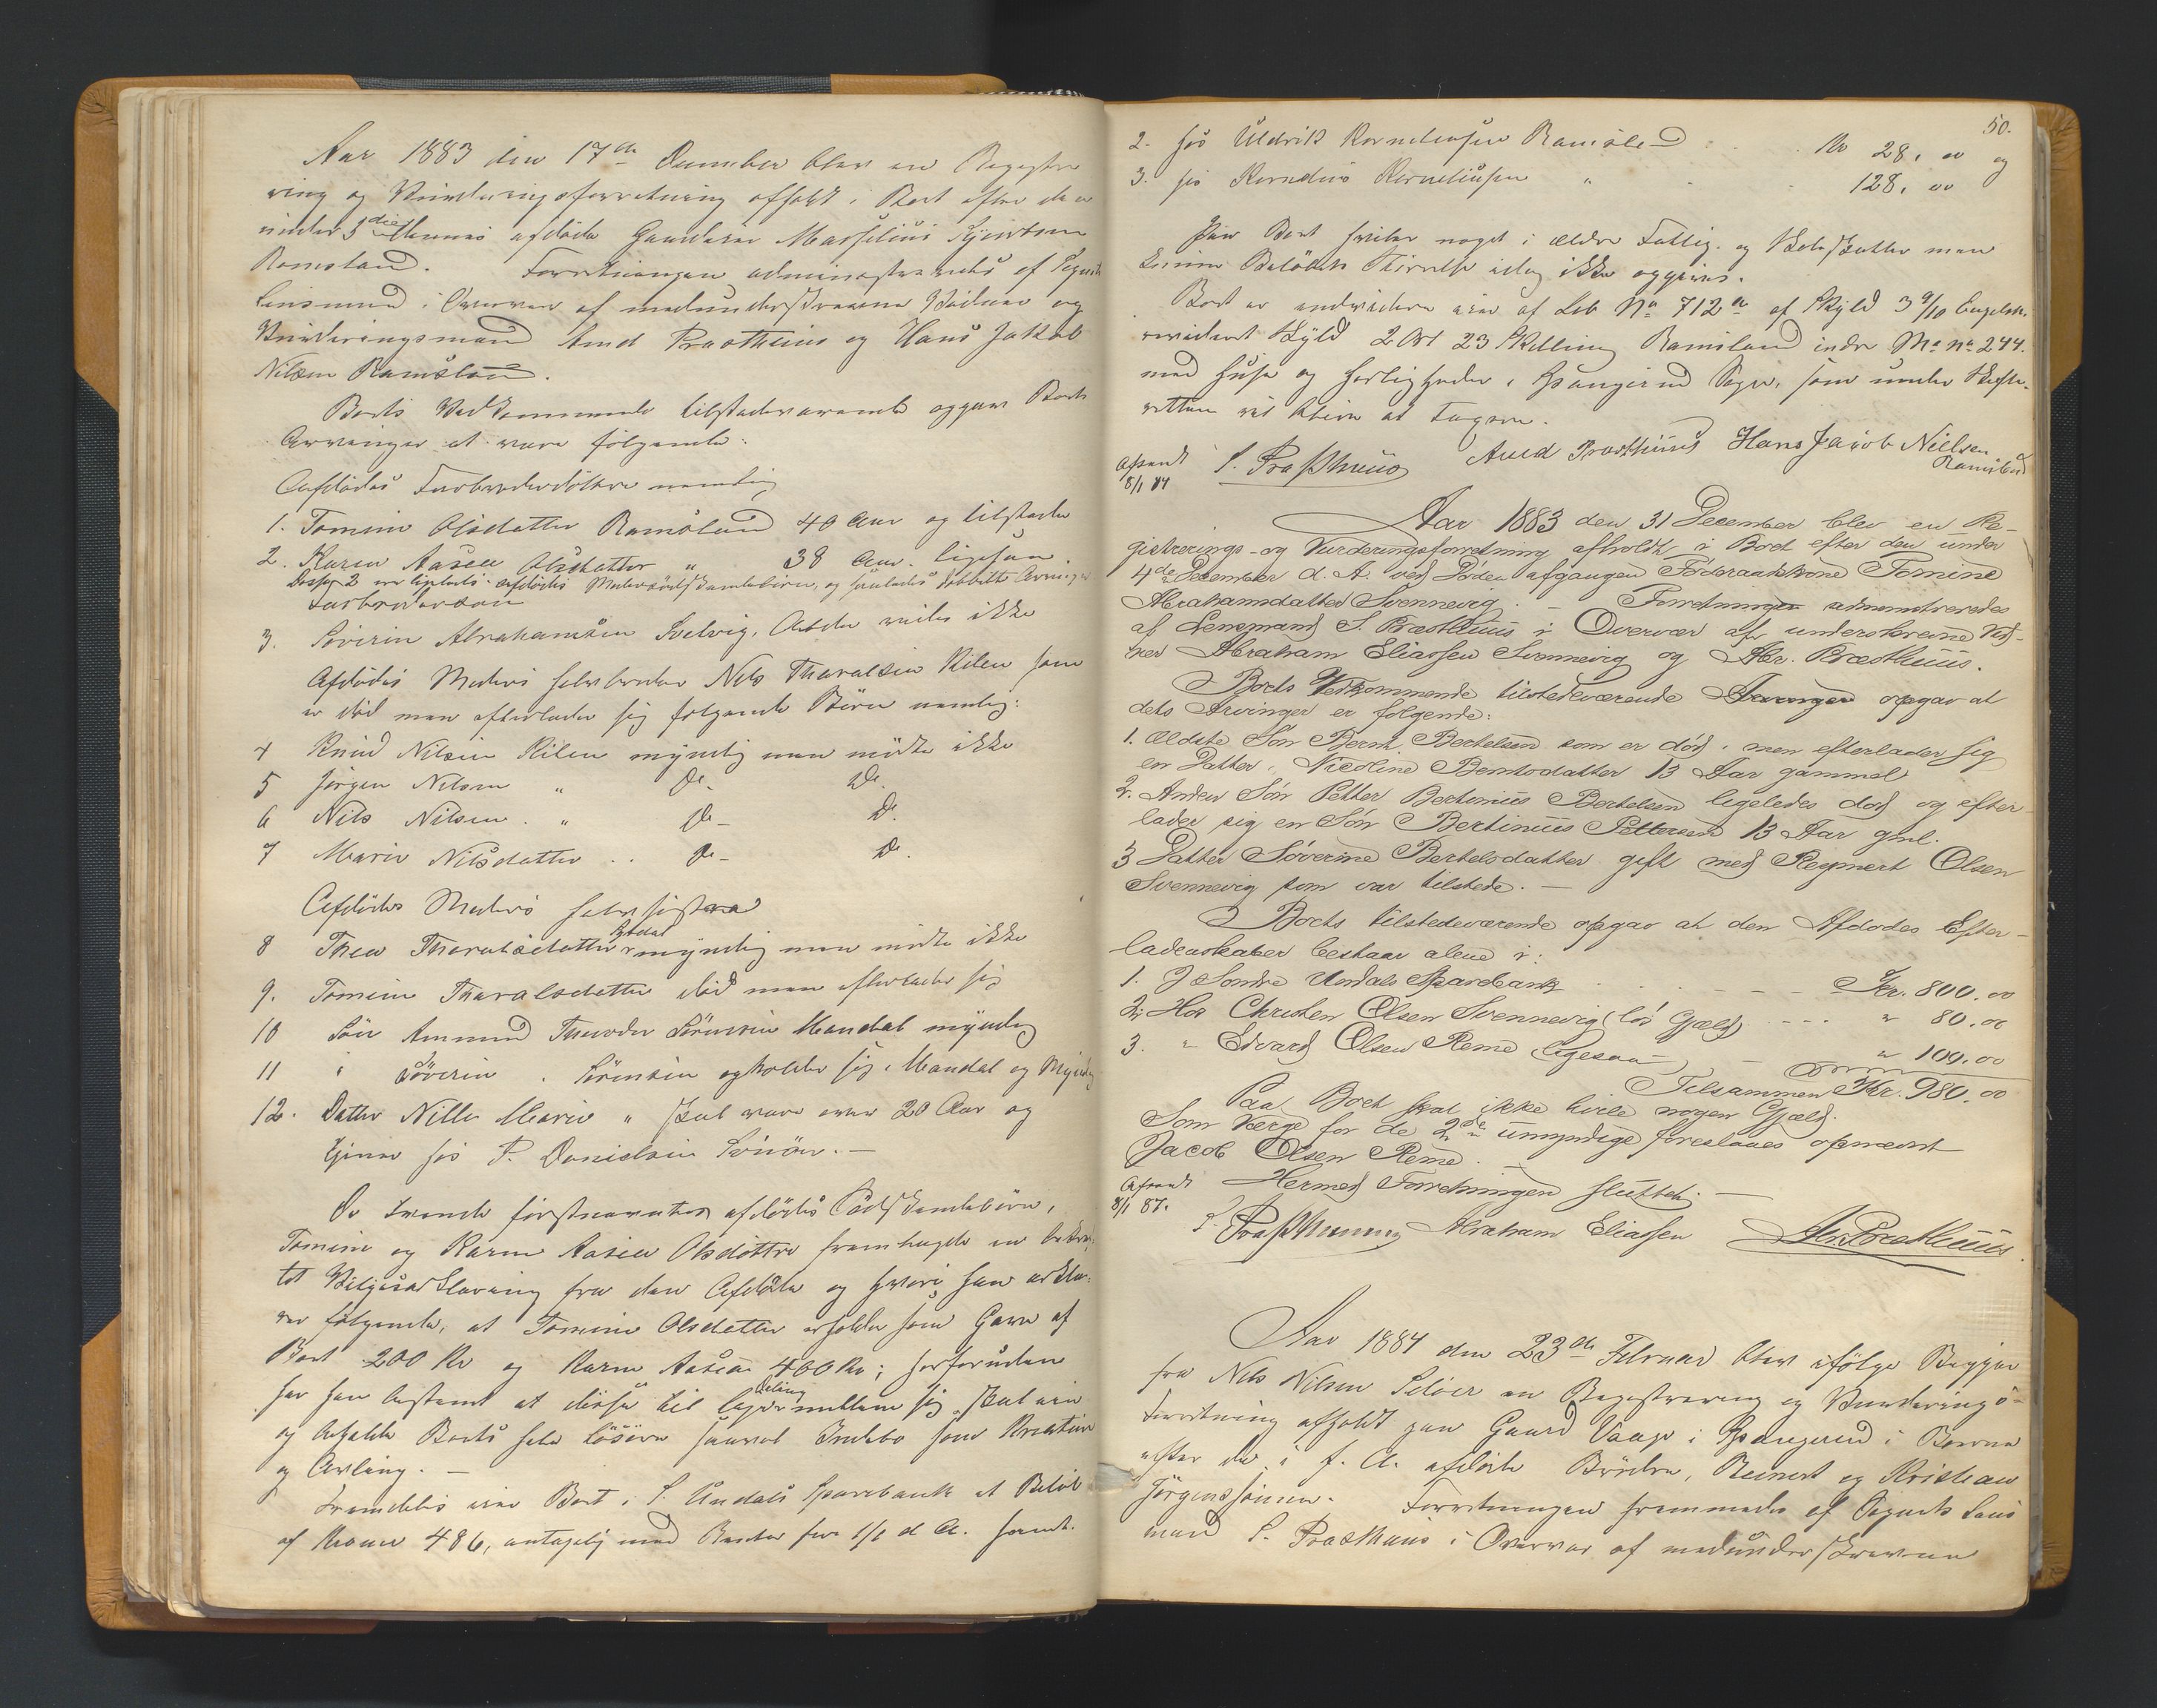 Aar 1883 den 17de December blev en Registre
ring og Vurderingsforretning afholdt i Boet efter den
under 3die dennes afdøde Gaardeier Marselius Kjørtsen
Ramsland. Forretningen administreredes af Sogne
lensmand i Overvær af medunderskrevne Vidner og
Vurderingsmænd Aud Præsthuus og Hans Jakob
Nilsen Ramsland.
Boets Vedkommende tilstedeværende opgav Boets
Arvinger at være følgende:
Afdødes Farbroderdøttre nemlig
1. Tomine Olsdatter Ramsland 40 Aar og tilstede
2. Karen Aasea Olsdatter " 38 Aar ligesaa
Disse 2 ere ligeledes afdødes Moders Sødskendebørn, og saaledes dobbelt Arvinger
Farbrodersøn
3. Sørine Abrahamsen Svelvig, Alder vides ikke
Afdødes Moders halvbroder Nils Tharalsen Kilen som
er død men efterlader sig følgende Børn nemlig:
4 Knud Nilsen Kilen myndig men mødte ikke
5 Jørgen Nilsen " Do- Do.
6 Nils Nilsen . " Do- Do.
7 Marie Nilsdatter . . Do- Do.
Afdødes Moders halvsøstre
8 Thea Tharalsdatter myndig men mødte ikke
9. Tomine Tharalsdatter død men efterlader sig
10 Søn Ammund Theodor Sørensen Mandal myndig
11 i Søverin . Sørensen opholder sig i Mandal og Myndig
12. Datter Nille Marie " skal være over 20 Aar og
tjener hos P. Danielsen
De tvende førstnævnte afdødes Sødskendebørn,
Tomine og Karen Aasea Olsdøttre fremlagde en bekræf
tet Viljeserklæring fra den Afdøde og hvori han erklæ-
rer følgende, at Tomine Olsdatter erholder som Gave af
Boet 200 Kr og Karen Aasea 400 Kr; desforuden
har han bestemt at disse til lige deling mellem sig skal eie
og beholde Boets hele Løsøre saavel Indbo som Kreature
og Avling. –
Fremdeles eier Boet i S. Undals Sparebank et Beløb
af Kroner 486, antagelig med Renter fra 1/1 d A. samt.
50.
2. hos Uldrik Kornelinsen Ramsland . . Kr 28, 00 og
3. hos Kornelius Korneliusen " . . 128, 00
Paa Boet hviler noget i ældre Fattig- og Skoleskatter men
kunne Beløbets Størrelse idag ikke opgives.
Boet er endvidere eier af Løb No 712a af Skyld 3 9/10 Engelsk.
revideret Skyld 2 Ort 23 Skilling Ramsland indre Ma no 244.
med Huse og Herligheder i Spangereid Sogn, som under Skifte-
retten vil blive at tagere.
Afsendt 8/1 84 S. Præsthuus Aud Præsthuus Hans Jacob Nielsen
Ramsland
Aar 1883 den 31 December blev en Re-
gistrerings- og Vurderingsforretning afholdt i Boet efter den under
4de December d. A. ved Døden afgangen Føderaadskone Tomine
Abrahamsdatter Svennevig. – Forretningen administreredes
af Lensmand S. Præsthuus i Overvær af underskrevne Vid-
ner Abraham Eliassen Svennevig og Abr. Præsthuus.
Boets Vedkommende tilstedeværende Arvinger opgav at
dets Arvinger er følgende:
1. Ældste Søn Bernt Bertelsen som er død, men efterlader sig
en Datter, Nicoline Berntsdatter 13 Aar gammel
2. Anden Søn Petter Bertinius Bertelsen ligeledes død og efter-
lader sig en Søn Bertinius Pettersen 13 Aar gml.
3 Datter Søverine Bertelsdatter gift med Regmert Olsen
Svennevig som var tilstede. –
Boets tilstedeværende opgav at den Afdødes Efter-
ladenskaber bestaar alene i:
1. I Søndre Undals Sparebank . . . – – – – Kr. 800.00
2. Hos Christen Olsen Svennevig (løs Gjæld) – – – " 80.00
3. " Edvard Olsen Reme ligesaa – " 100.00
Tilsammen Kr. 980.00
Paa Boet skal ikke hvile nogen Gjæld.
Som Værge for de 2de umyndige foreslaaes opnævnt
Jacob Olsen Reme. –
Afsendt 8/1 84. Hermed Forretningen sluttet. –
S. Præsthuus Abraham Eliassen Abr. Præsthuus.
Aar 1884 den 23de Februar blev ifølge Begjær
fra Nils Nilsen Seløer en Registrering og Vurderings-
forretning afholdt paa Gaard Vaage i Spangereid i Boerne
efter de i f. A. afdøde Brødre, Reinert og Kristian
Jørgenssønner. Forretningen fremmedes af Sognets Lens
mand S. Præsthuus i Overvær af medunderskrevne